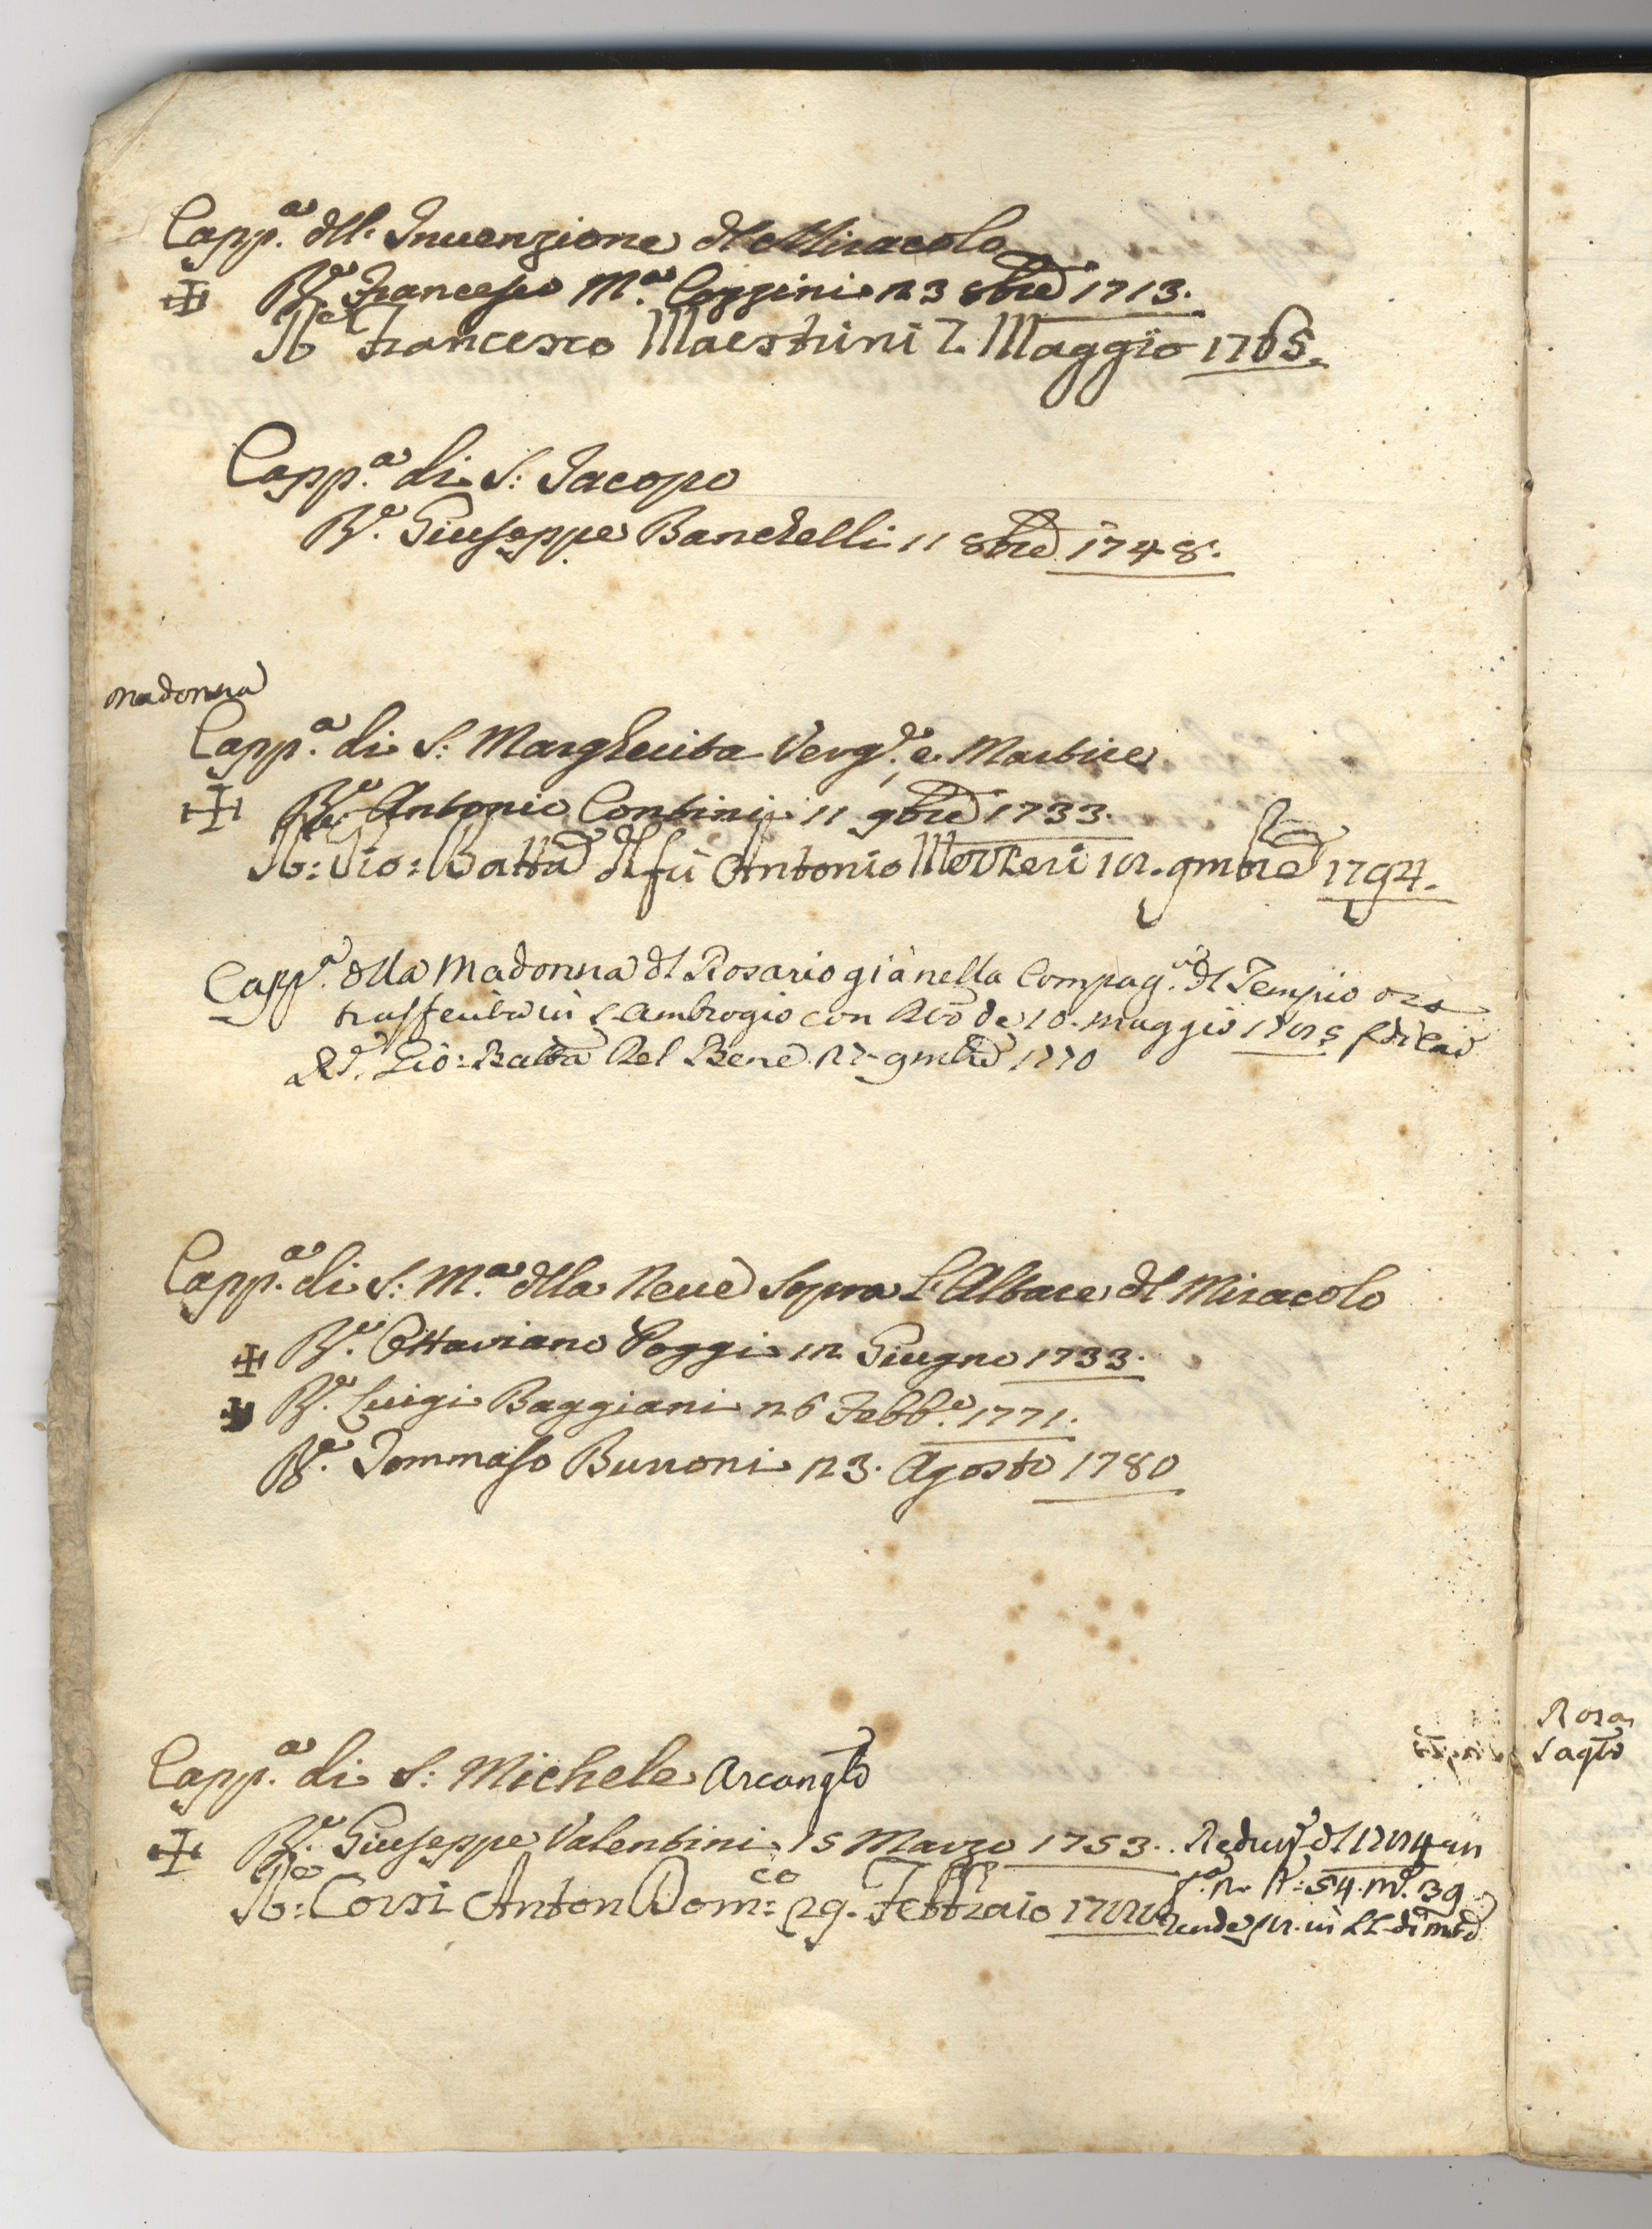 Capp.a dll' Inuenzione dl Miracolo
R.e Francesco M.a Coppini 23 8bre 1713.
R.e Francesco Maestrini 7. Maggio 1765.
Capp.a di S: Jacopo
R.e Giuseppe Banchelli 11 8bre 1748.
Madonna
Capp.a di S: Margherita Verg.e e Martire
R.e Antonio Contini 11 9bre 1733.
R: Gio: Batta dl fù Antonio 12. 9mbre 1794.
Capp.a dlla Madonna dl Rosario già nella Compag.a dl Tempio ora
trasferita in S. Ambrogio con de 10. Maggio
R.e Gio: Batta Del Bene 27 9mbre 1770
Capp.a di S: M.a dlla Neue sopra l'Altare dl Miracolo
R.e Ottaviano Poggi 12 Giugno 1733.
R.e Luigi Baggiani 26 Febb.o 1771.
R.e Tommaso Burroni 23. Agosto 1780
Capp.a di S: Michele Arcanglo
R.e Giuseppe Valentini 15 Marzo 1753.
R: Corsi Anton Dom:co 29. Febbraio